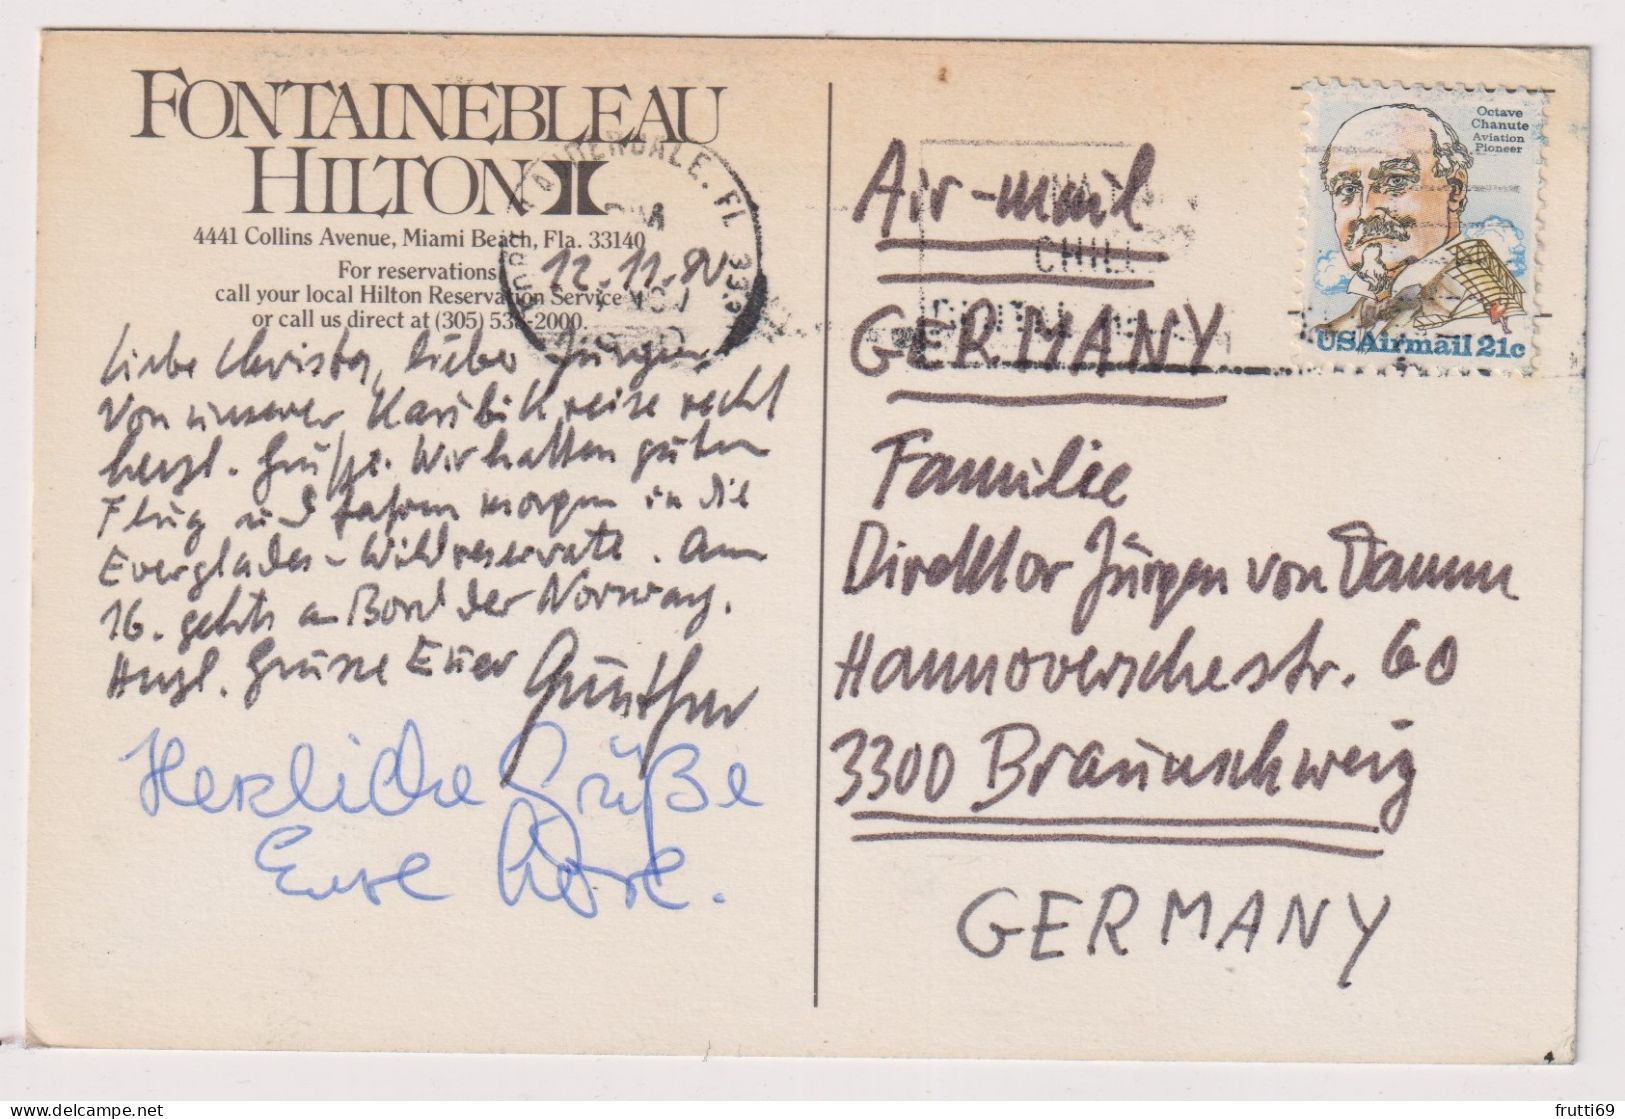 FONTAINEBLEAU
HILTON
4441 Collins Avenue, Miami Beach, Fla. 33140
For reservations
call your local Hilton Reservation Service
or call us direct at (305) 538-2000.
12.11.80
Liebe Christa, lieber Jürgen,
Von unserer Karibikreise recht
herzl. Grüße. Wir hatten guten
Flug und fahren morgen in die
Everglades-Wildreservate. Am
16. gehts an Bord der Norway.
Herzl. Grüsse Euer Günther
Herzliche Grüße
Eure
LAUDERDALE, FL 333
Octave
Chanute
Aviation
Pioneer
USAirmail 21c
Air-mail
GERMANY
Familie
Direktor Jürgen von Damm
Hannoverschestr. 60
3300 Braunschweig
GERMANY
frutti69
delcampe.net